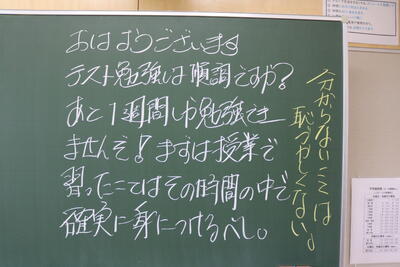 おはようございます
テスト勉強は順調ですか？
あと1週間しか勉強でき
ませんぞ！まずは授業で
習ったことはその時間の中で
確実に身につけるべし。
分からないことは
恥ずかしくない。